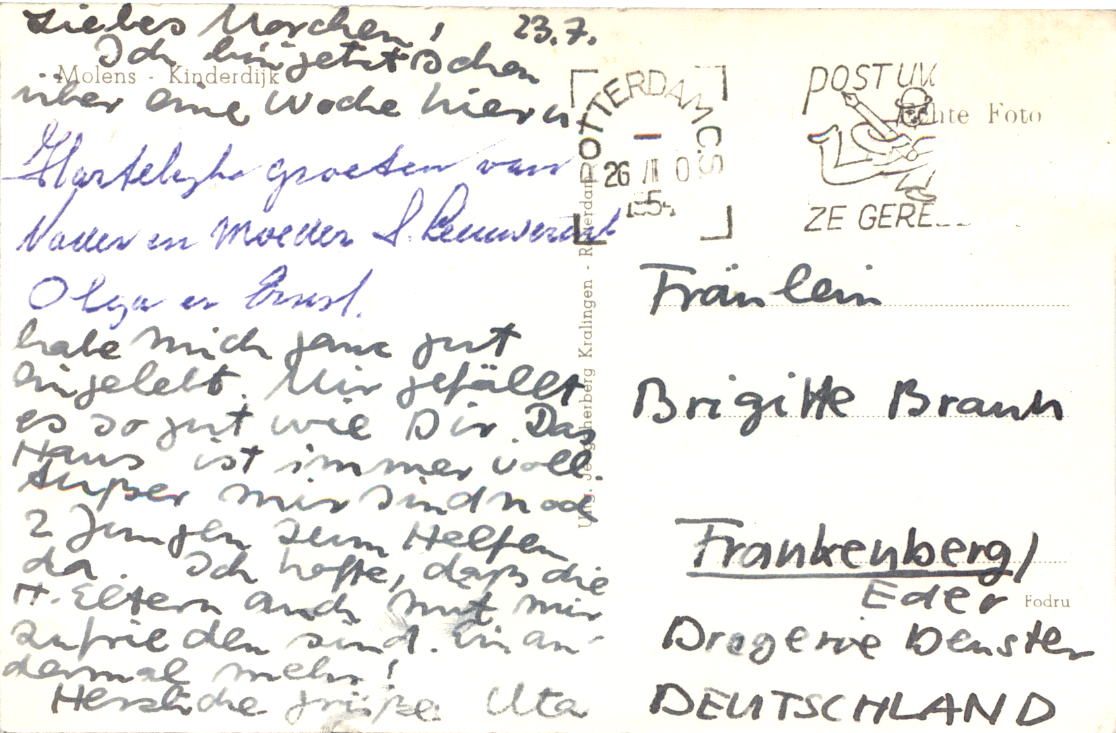 Liebes Morchen! 23.7.
Ich bin jetzt schon
über eine Woche hier u.
Hartelijke groeten van
Vader en Moeder
Olga en Ernst.
habe mich ganz gut
eingelebt. Mir gefällt
es so gut wie Dir. Das
Haus ist immer voll.
Außer mir sind noch
2 Jungen zum Helfen
da. Ich hoffe, daß die
H.-Eltern auch mit mir
zufrieden sind. Ein an-
dermal mehr!
Herzliche Grüße Uta
Molens - Kinderdijk
Echte Foto
ROTTERDAM C.S
26 VII 0
1954
POST UW
ZE GERE
Kralingen - Rotterdam
Fräulein
Brigitte Braun
Frankenberg/
Eder
Fodru
Drogerie Denster
DEUTSCHLAND